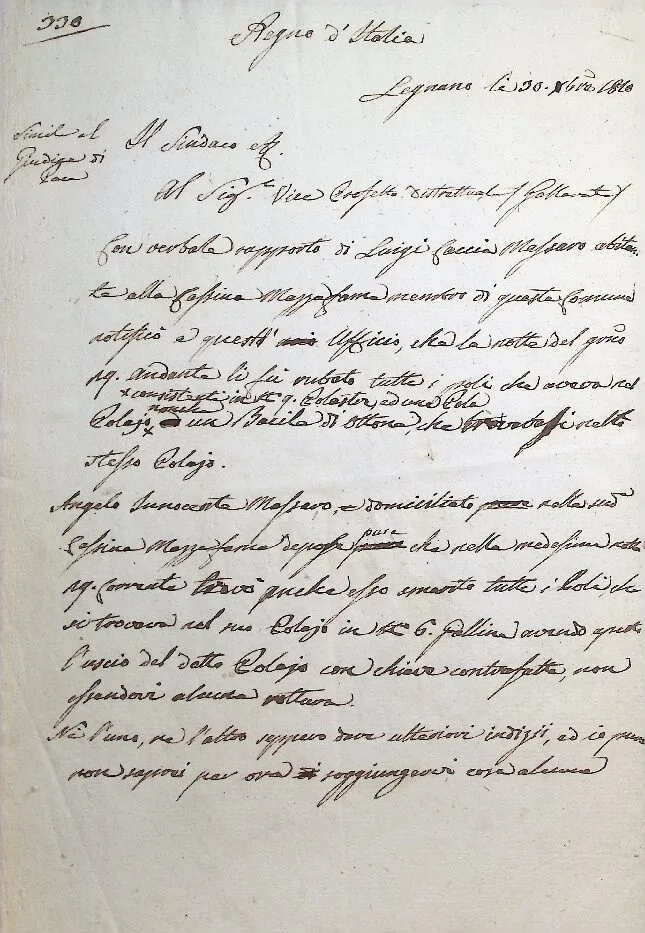 330
Regno d'Italia
Legnano li 30. Xbre 1810
Simile al
Giudice di
Pace
Il Sindaco
Al Sig.e Vice Prefetto Distrettuale (Gallarate)
Con verbale rapporto di Luigi Caccia Massaro abitan-
te alla Cassina Mazzafame membro di questa Comune
notificò a questo Ufficio, che la notte del giorno
29. andante li fù rubato tutti i poli che aveva nel
consistenti in 9.
Polajo, nonché un Bacile di Ottone, che nello
stesso Polajo.
Angelo Innocente Massaro, domiciliato nella sud.a
Cassina Mazzafame depose pure che nella medesima notte
29. corrente trovò esso smarito tutti i Poli che
si trovava nel suo Polajo in 6. Galline avendo aperto
l'uscio del detto Polajo con chiave contrafatta, non
essendovi alcuna rottura.
Nè l'uno, ne l'altro seppero dare ulteriori indizii, ed io pure
non saprei per ora soggiungervi cosa alcuna